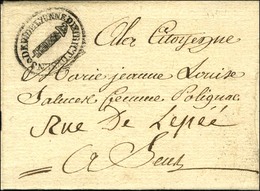 A la Citoyenne
Marie jeanne Louise
Saluces femme Polignac
Rue De Lepée
a Sens